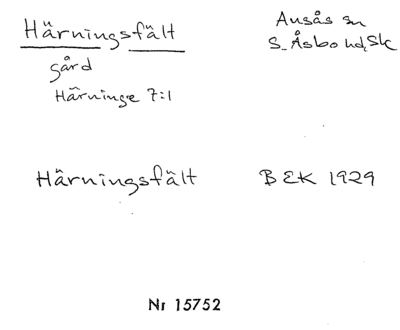 Härningsfält
gård
Härninge 7:1
Ausås sn
S. Åsbo hd, Sk
Härningsfält BEK 1929
Nr 15752